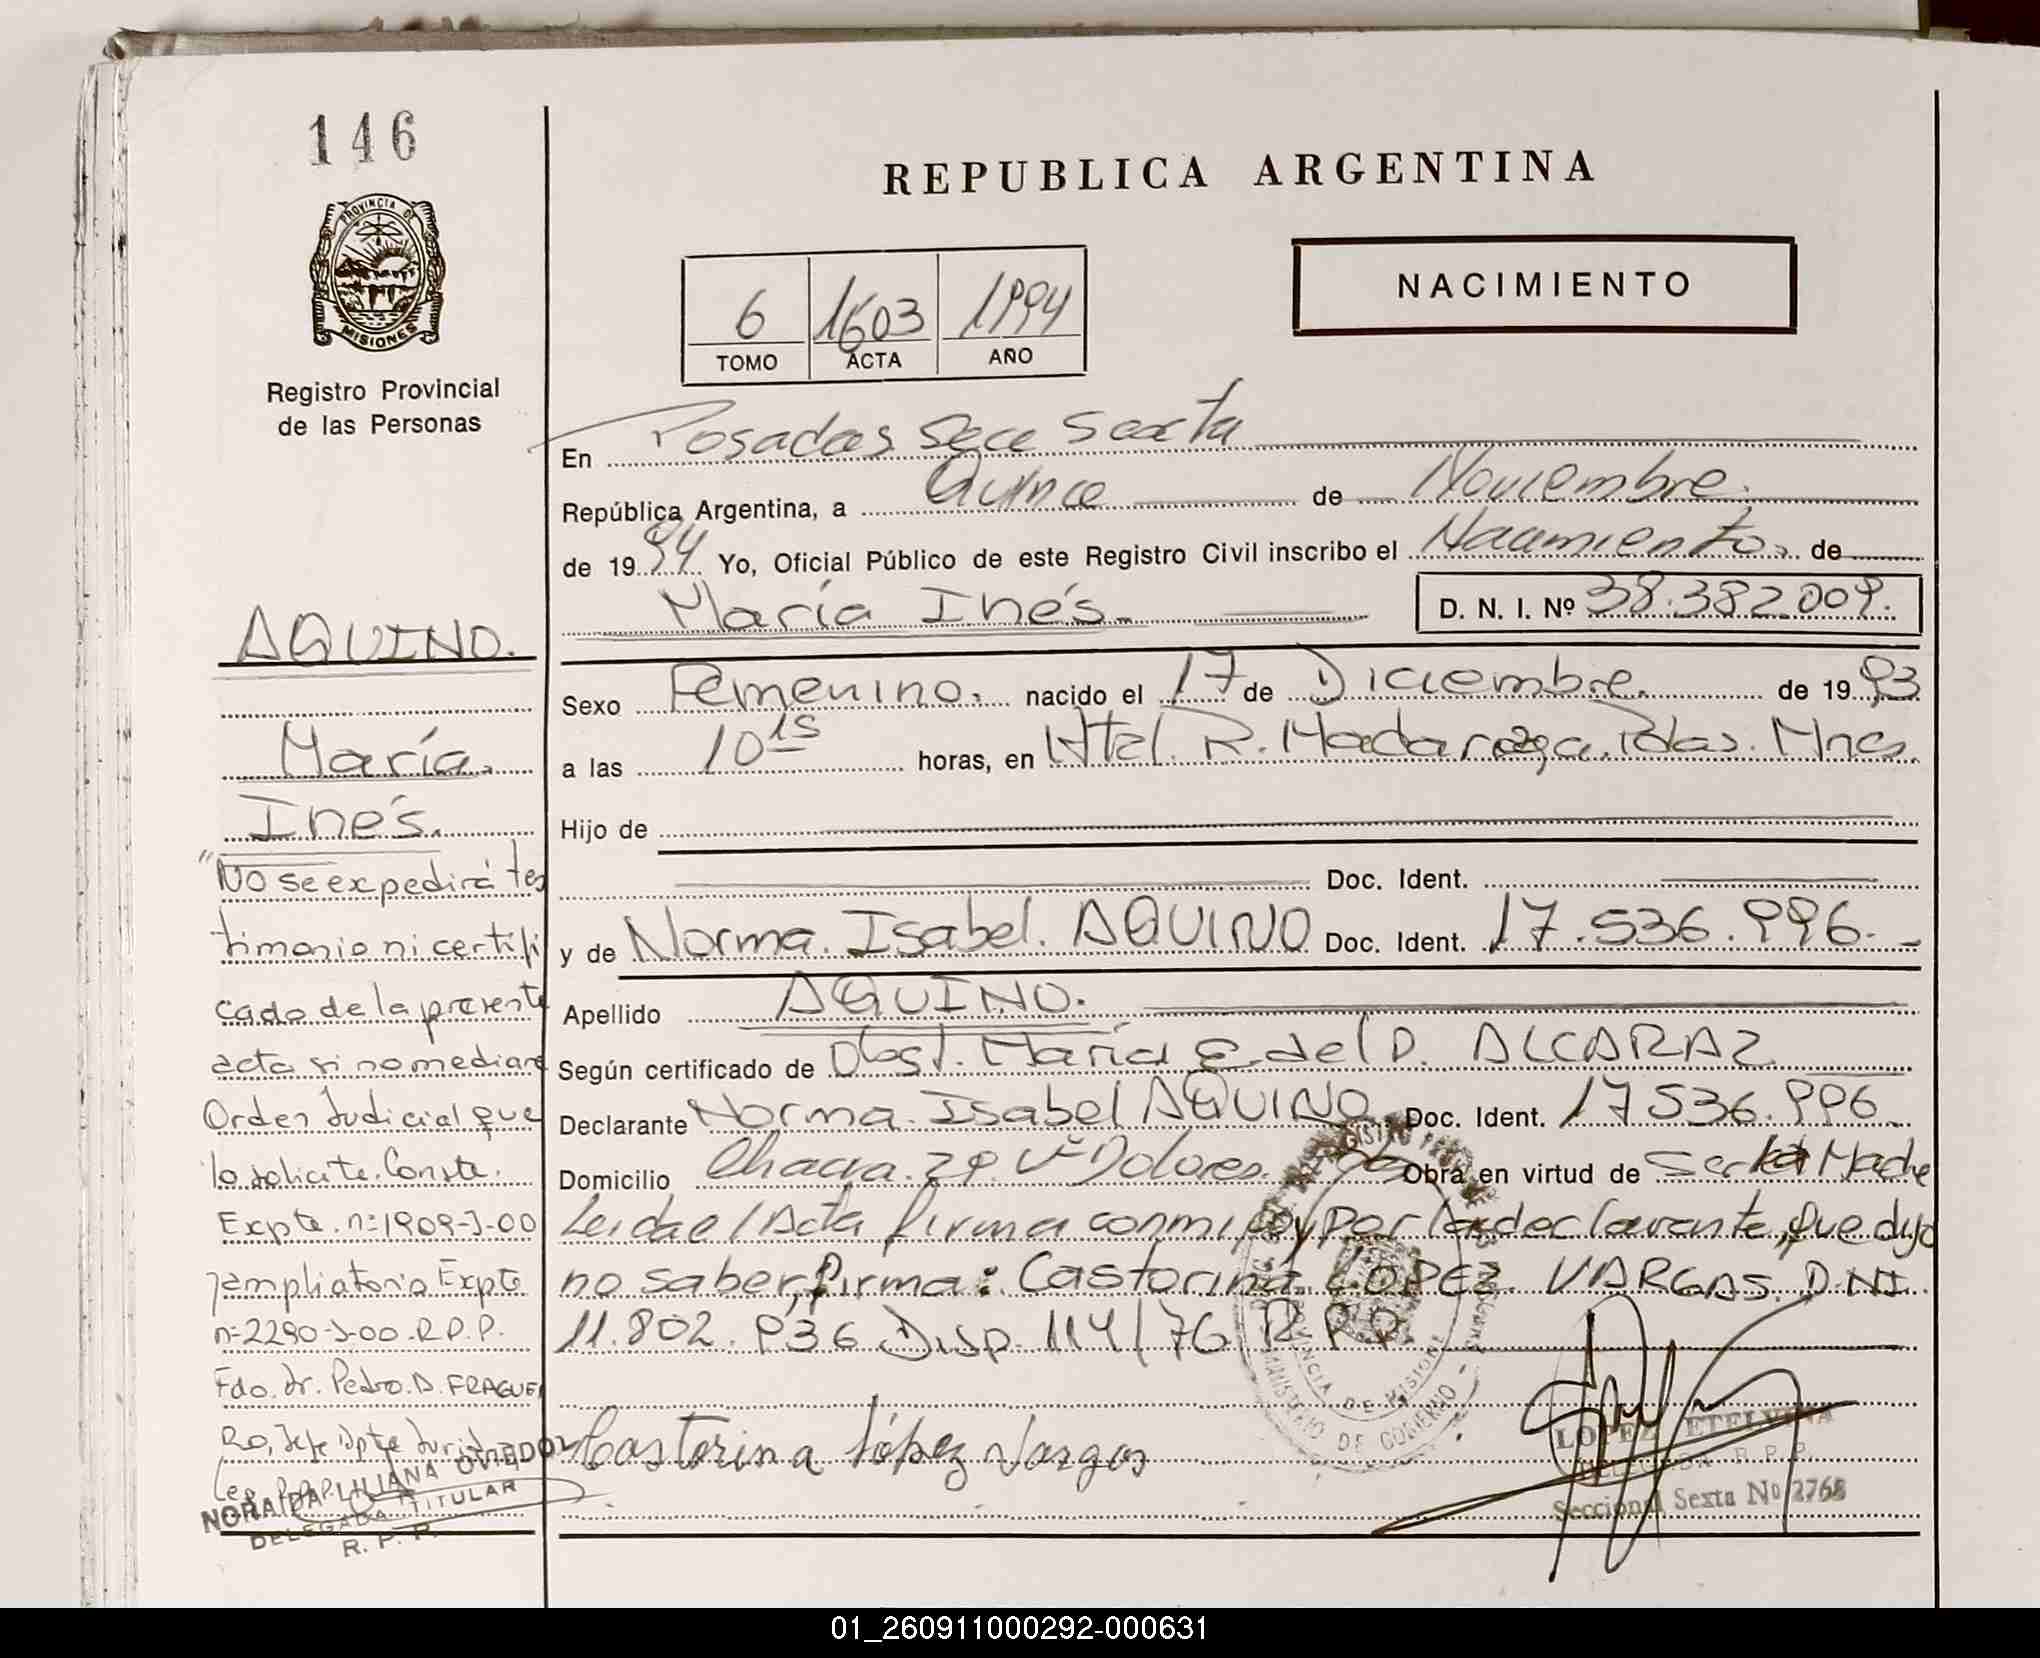 146
PROVINCIA DE
MISIONES
Registro Provincial
de las Personas
REPUBLICA ARGENTINA
NACIMIENTO
6 1603 1994
TOMO ACTA AÑO
En Posadas Secc Sexta
República Argentina, a Quince de Noviembre
de 1994 Yo, Oficial Público de este Registro Civil inscribo el Nacimiento de
María Inés. D. N. I. Nº 38.382.009.
Sexo Femenino. nacido el 17 de Diciembre. de 1993
a las 10 15 horas, en Htal. R. Madariaga. Pdas. Mnes.
Hijo de
Doc. Ident.
y de Norma. Isabel. AQUINO Doc. Ident. 17.536.996.-
Apellido AQUINO.
Según certificado de Obst. María E. del P. ALCARAZ
Declarante Norma. Isabel AQUINO. Doc. Ident. 17536.996
Domicilio Chacra. 29. Va Dolores. Obra en virtud de ser la Madre
Leida el Acta firma conmigo y por la declarante, que dijo
no saber, firma: Castorina LOPEZ VARGAS. D.N.I.
11.802.936 Disp. 114/76 R.P.P.
Castorina López Vargas
LOPEZ ETELVINA
DELEGADA R. P. P.
Seccional Sexta No 2768
PROVINCIA DE MISIONES
MINISTERIO DE GOBIERNO
AQUINO.
María.
Inés.
"No se expedirá tes
timonio ni certifi
cado de la presente
acta si no mediare
Orden Judicial que
lo solicite. Conste.
Expte. nº 1909-J-00
y ampliatorio Expte
nº 2290-J-00-R.P.P.
Fdo. Dr. Pedro. D. FRAGUE
Ro, Jefe Dpto Jurid.
Leg. R.P.P.
NORAIDA LILIANA OVIEDO
DELEGADA TITULAR
R. P. P.
01_260911000292-000631